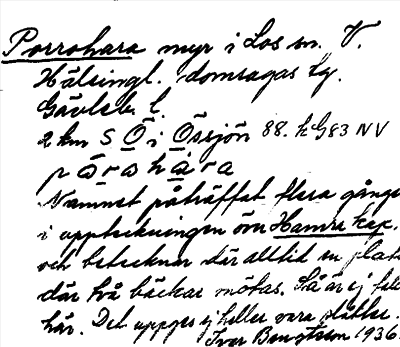 Porrohara myr i Los sn. V.
Hälsingl. domsagas tg.
Gävleb. l.
2 km S Ö i Össjön 88. k G83 NV
på̄rahāra
Namnet påträffat flera gånger
i uppteckningen om Hamra kap.
och betecknar där alltid en plats
där två bäckar mötas. Så är ej fallet
här. Det uppges ej heller vara ställe.
Iver Bengtsson 1936.